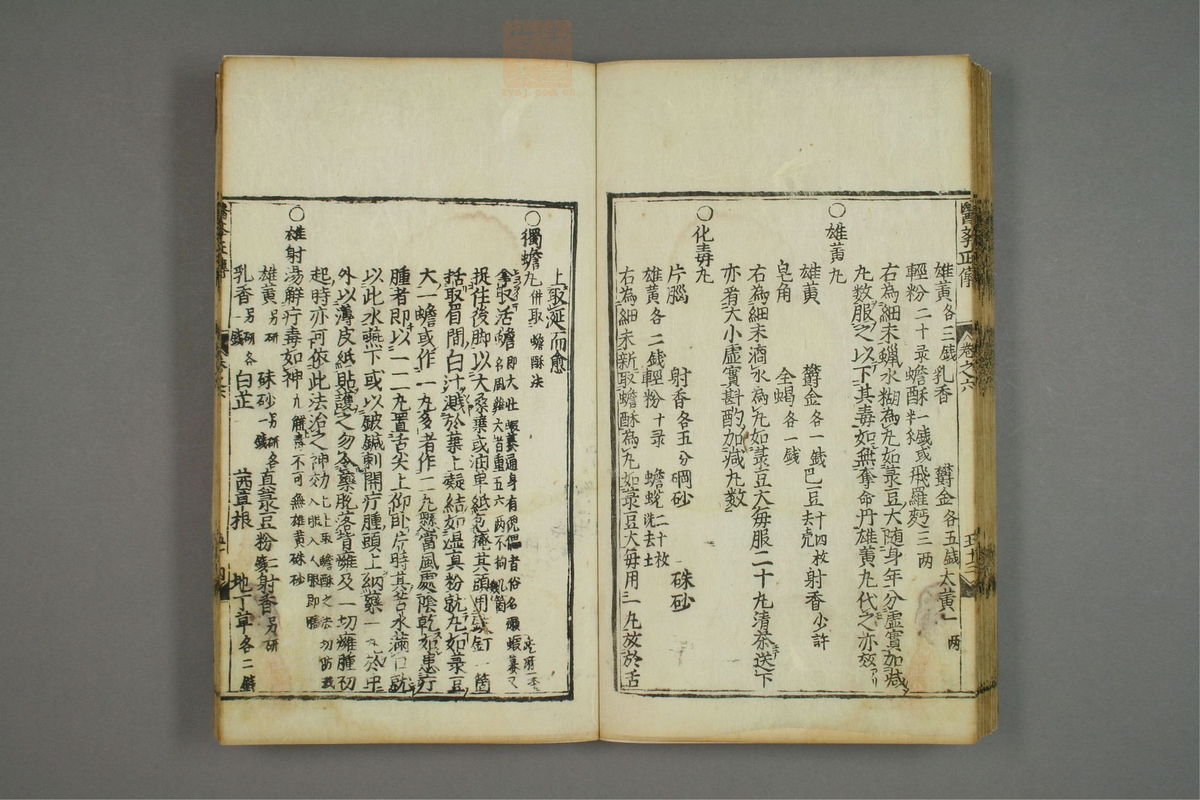 醫學正傳 卷之六
雄黃各三錢乳香 欝金各五錢大黃一兩
輕粉二十录蟾酥一錢或飛羅麪三兩
右為細末蝋水糊為丸如菉豆大随身年分虚實加减
丸数服之以下其毒如無奪命丹雄黃丸代之亦效
○雄黃丸
雄黃 欝金各一錢巴豆十四枚去売射香少許
皂角 全蝎各一錢
右為細末滴水為丸如菉豆大每服二十丸清茶送下
亦看大小虚實斟酌加减丸数
○化毒丸
片腦 射香各五分硇砂 硃砂
雄黃各二錢輕粉十录 蟾蛻二十枚洗去土
右為細末新取蟾酥為丸如菉豆大每用一丸放於舌
上取涎而愈
○獨蟾丸併取蟾酥法
拿取活蟾
捉住後脚以大桑葉或油單紙包掩其頭用或釘一箇
括取眉間白汁溅於葉上凝結如煴真粉就丸如菉豆
大一蟾或作一丸多者作二丸懸當風處陰乾如患疔
腫者即以一二丸置舌尖上仰卧片時其苦水滿口就
以此水嚥下或以鈹鍼刺開疔腫頭上納藥一丸於中
外以薄皮紙貼護之勿令藥脫落背癰及一切癰腫初
起時亦可依此法治之神効
○雄射湯解疔毒如神
雄黃另研 硃砂另研各一錢真菉豆粉二錢射香另研
乳香 白芷 茜草根 地丁草各二錢
醫學正傳